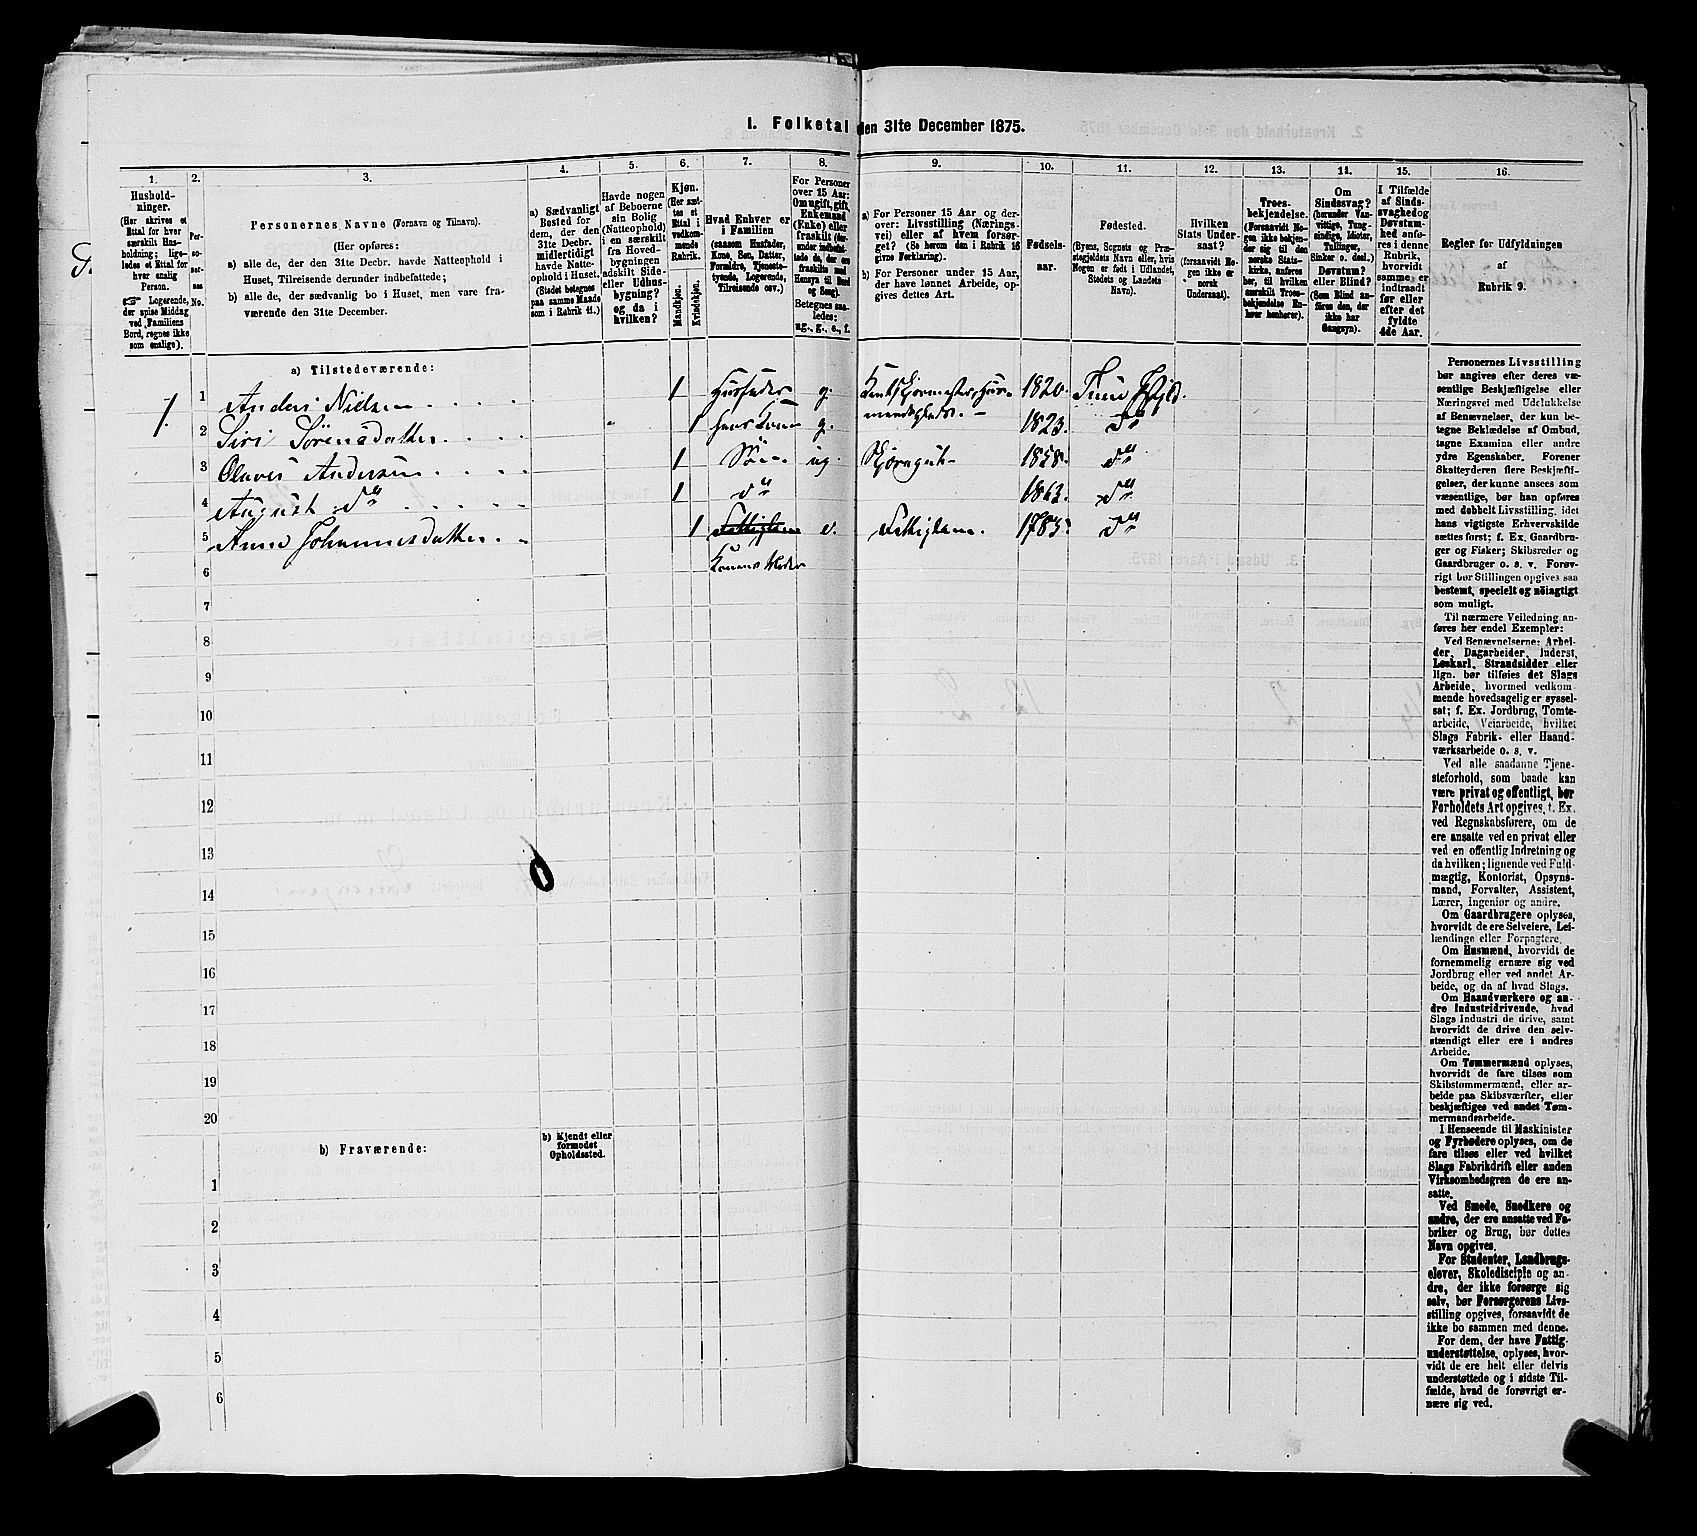 I. Folketal den 31te December 1875.
1.
2.
3.
4.
5.
6.
7.
8.
9.
10.
11.
12.
13.
14.
15.
16.
Hushold-
ninger.
(Her skrives et
Ettal for hver
særskilt Hus-
holdning; lige-
ledes et Ettal for
hver enslig
Person.
☞ Logerende,
der spise Middag
ved Familiens
Bord, regnes ikke
som enslige).
Per-
so-
ner-
nes
No.
Personernes Navne (Fornavn og Tilnavn).
(Her opføres:
a) alle de, der den 31te Decbr. havde Natteophold i
Huset, Tilreisende derunder indbefattede;
b) alle de, der sædvanlig bo i Huset, men vare fra-
værende den 31te December.
a) Sædvanligt
Bosted for
dem, der den
31te Decbr.
midlertidigt
havde Natte-
ophold i Huset.
(Stedet betegnes
paa samme Maade
som i Rubrik 11.)
Havde nogen
af Beboerne
sin Bolig
(Natteophold)
i en særskilt
fra Hoved-
bygningen
adskilt Side-
eller Udhus-
bygning?
og da i
hvilken?
Kjøn.
(Her sæt-
tes et
Ettal i
vedkom-
mende
Rubrik.
Mandkjøn.
Kvindekjøn.
Hvad Enhver er
i Familien
(saasom Husfader,
Kone, Søn, Datter,
Forældre, Tjeneste-
tyende, Logerende,
Tilreisende osv.)
For Personer
over 15 Aar:
Om ugift, gift,
Enkemand
(Enke) eller
fraskilt
Betegnes saa-
ledes:
ug., g., e., f.
a) For Personer 15 Aar og der-
over: Livsstilling (Nærings-
vei) eller af hvem forsør-
get? (Se herom den i Rubrik 16
givne Forklaring).
b) For Personer under 15 Aar,
der have lønnet Arbeide, op-
gives dettes Art.
Fødsels-
aar.
Fødested.
(Byens, Sognets og Præ-
stegjeldets Navn eller, hvis
Nogen er født i Udlandet,
Stedets og Landets
Navn).
Hvilken
Stats Under-
saat?
(forsaavidt No-
gen ikke er
norsk
Undersaat).
Troes-
bekjendelse.
(Forsaavidt No-
gen ikke bekjen-
der sig til den
norske Stats-
kirke, anføres
her, til hvilken
særskilt Troes-
bekjendelse En-
hver henhører).
Om
Sindssvag?
(herunder Van-
vittige, Tung-
sindige, Idioter,
Tullinger,
Sinker o. desl.)
Døvstum?
eller Blind?
(Som Blind an-
føres den, der
ikke har
Gangsyn).
I Tilfælde
af Sinds-
svaghed og
Døvstum-
hed anfø-
res i denne
Rubrik,
hvorvidt
samme er
indtraadt
før eller
efter det
fyldte
4de Aar.
Regler for Udfyldningen
af
Rubrik 9.
a) Tilstedeværende:
1 Anders Nielsen 1 Husfader g. 1820.
1. 2 Siri Sörensdatter 1 hans Kone g. 1823. do
3 Olaves Andersen 1 Sön ug. 1858. do
4 August do 1 do 1863. do
5 Anne Johannesdatter 1 Fattiglem e. Fattiglem. 1785. do
6 Konens Moder
7
8
9
10
11
12
13
14
15
16
17
18
19
20
b) Fraværende:
b) Kjendt eller
formodet
Opholdssted.
1
2
3
4
5
6
Personernes Livsstilling
bør angives efter deres væ-
sentlige Beskjæftigelse eller
Næringsvei med Udelukkelse
af Benævnelser, der kun be-
tegne Beklædelse af Ombud,
tagne Examina eller andre
ydre Egenskaber. Forener
Skatteyderen flere Beskjæfti-
gelser, der kunne ansees som
væsentlige, bør han opføres
med dobbelt Livsstilling, idet
hans vigtigste Erhvervskilde
sættes først; f. Ex. Gaardbru-
ger og Fisker; Skibsreder og
Gaardbruger o. s. v. Forøv-
rigt bør Stillingen opgives saa
bestemt, specielt og nöiagtigt
som muligt.
Til nærmere Veiledning an-
føres her endel Exempler:
Ved Benævnelserne: Arbei-
der, Dagarbeider, Inderst,
Løskarl, Strandsidder eller
lign. bør tilføies det Slags
Arbeide, hvormed vedkom-
mende hovedsagelig er syssel-
sat; f. Ex. Jordbrug, Tomte-
arbeide, Veiarbeide, hvilket
Slags Fabrik- eller Haand-
værksarbeide o. s. v.
Ved alle saadanne Tjene-
steforhold, som baade kan
være privat og offentligt, bør
Forholdets Art opgives, f. Ex.
ved Regnskabsførere, om de
ere ansatte ved en privat eller
ved en offentlig Indretning og
da hvilken; lignende ved Fuld-
mægtig, Kontorist, Opsyns-
mand, Forvalter, Assistent,
Lærer, Ingeniør og andre.
Om Gaardbrugere oplyses,
hvorvidt de ere Selveiere, Lei-
lændinge eller Forpagtere.
Om Husmænd, hvorvidt de
fornemmelig ernære sig ved
Jordbrug eller ved andet Ar-
beide, og da af hvad Slags.
Om Haandværkere og an-
dre Industridrivende, hvad
Slags Industri de drive, samt
hvorvidt de drive den selv-
stændigt eller ere i andres
Arbeide.
Om Tømmermænd oplyses,
hvorvidt de fare tilsøs som
Skibstømmermænd, eller ar-
beide paa Skibsværfter, eller
beskjæftiges ved andet Tøm-
mermandsarbeide.
I Henseende til Maskinister
og Fyrbødere oplyses, om de
fare tilsøs eller ved hvilket
Slags Fabrikdrift eller anden
Virksomhedsgren de ere an-
satte.
Ved Smede, Snedkere og
andre, der ere ansatte ved Fa-
briker og Brug, bør dettes
Navn opgives.
For Studenter, Landbrugs-
elever, Skoledisciple og an-
dre, der ikke forsørge sig
selv, bør Forsørgerens Livs-
stilling opgives, forsaavidt de
ikke bo sammen med denne.
For dem, der have Fattig-
understøttelse, oplyses, hvor-
vidt de ere helt eller delvis
understøttede og i sidste Til-
fælde, hvad de forøvrigt er-
nære sig ved.